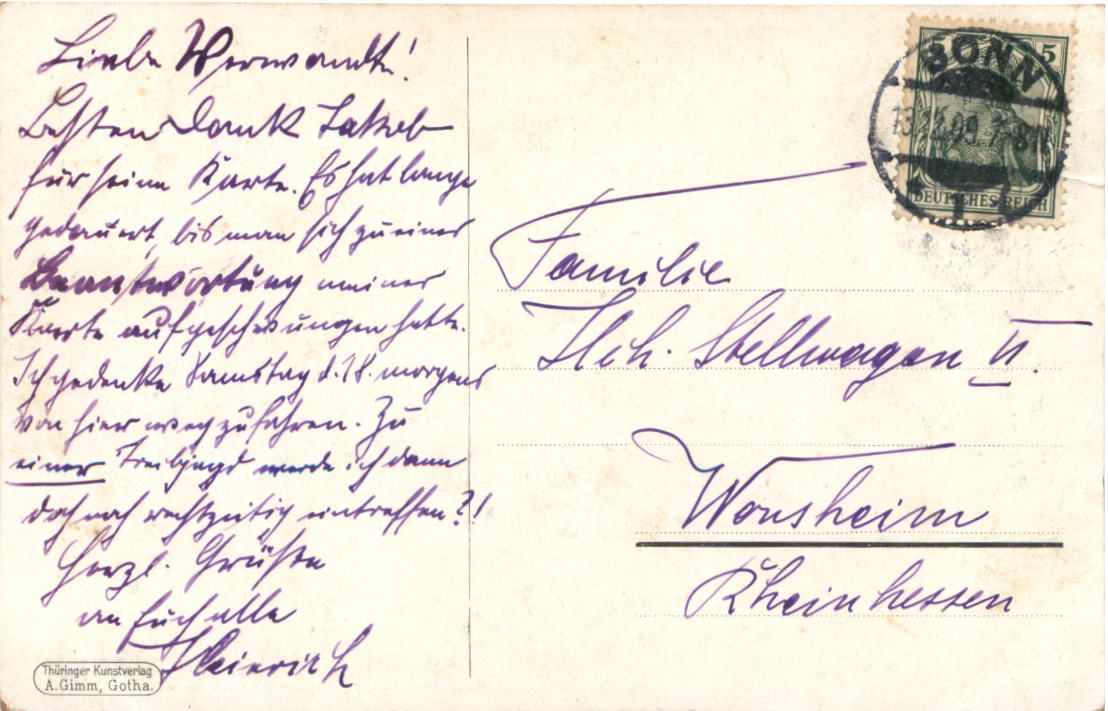 Liebe Verwandte!
Besten Dank Jakob
für seine Karte. Es hat lange
gedauert, bis man sich zu einer
Beantwortung meiner
Karte aufgeschwungen hatte.
Ich gedenke Samstag d. 18. morgens
von hier wegzufahren. Zu
einer Treibjagd werde ich dann
doch noch rechtzeitig eintreffen?!
Herzl. Grüße
an Euch alle
Heinrich
Thüringer Kunstverlag
A. Gimm, Gotha.
BONN
5
DEUTSCHES REICH
Familie
Hch. Stellwagen II.
Wonsheim
Rheinhessen